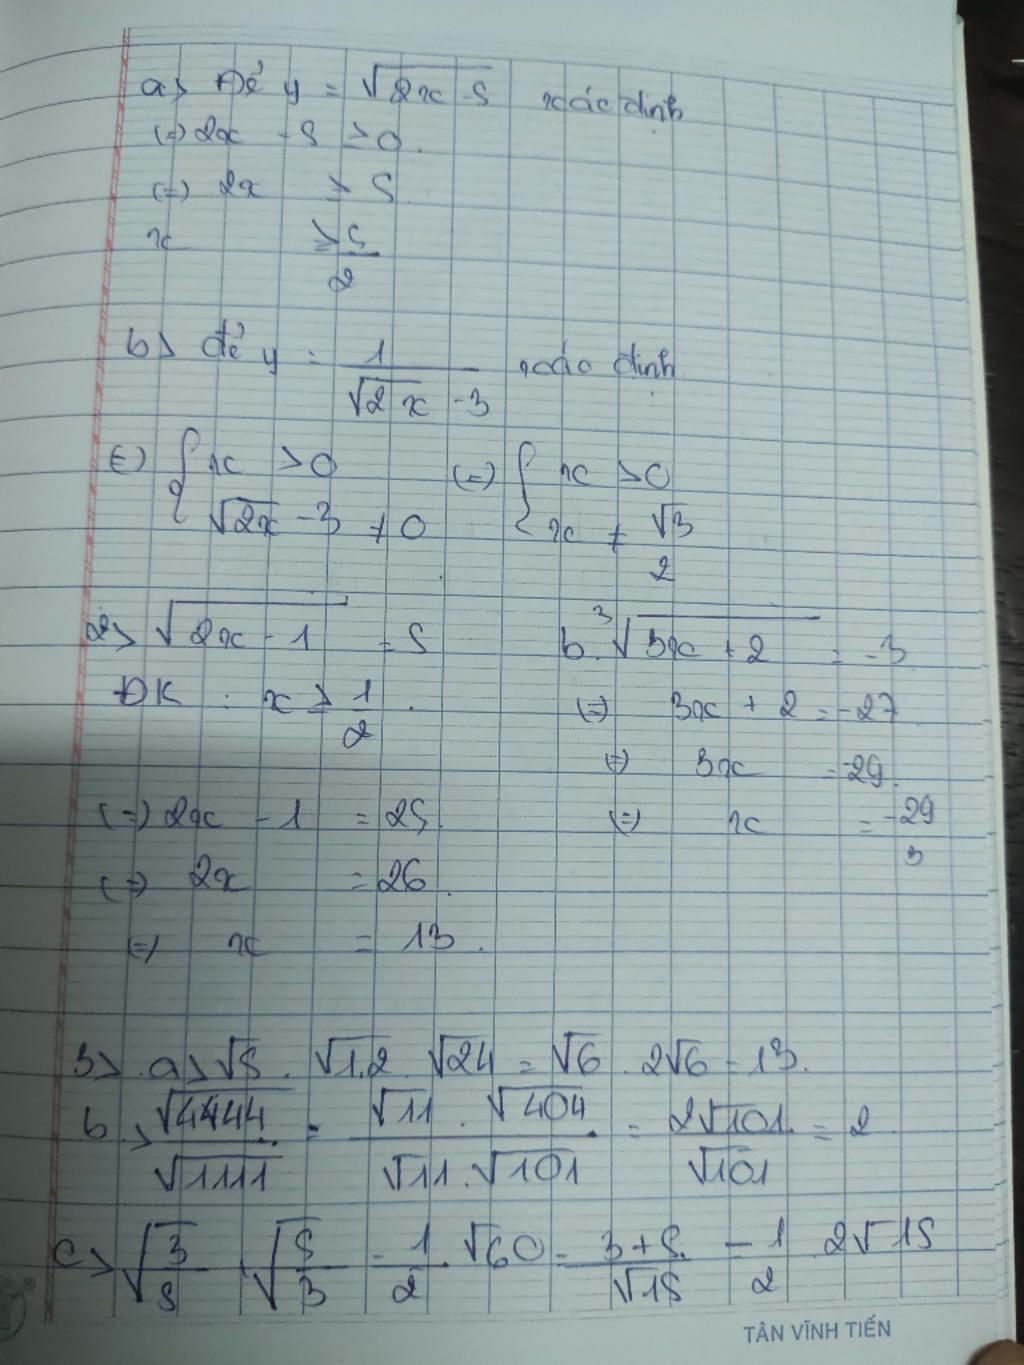 a> Để y = √(2x - 5) xác định
(=) 2x - 5 ≥ 0.
(=) 2x ≥ 5
x ≥ 5/2
b> để y = 1/(√2x - 3) xác định
(=) { x > 0 (=) { x > 0
√2x - 3 ≠ 0 x ≠ √3/2
2> √(2x - 1) = 5 b. ³√(3x + 2) = -3
ĐK : x ≥ 1/2. (=) 3x + 2 = -27
(=) 3x = -29.
(=) 2x - 1 = 25 (=) x = -29/3
(=) 2x = 26.
(=) x = 13.
3> a> √5 . √1,2 . √24 = √6 . 2√6 = 13.
b> √4444/√1111 = √11 . √404/√11 . √101 = 2√101/√101 = 2
c> √(3/5) + √(5/3) - 1/2 . √60 = (3+5)/√15 - 1/2 . 2√15
TÂN VĨNH TIẾN